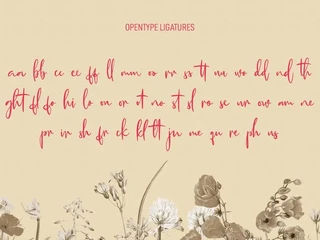 OPENTYPE LIGATURES
aa bb cc ee ff ll mm oo rr ss tt nu wo dd nd th
ght fl fo hi lo on or ot no st sl ro sc ur ow am ne
pr ir sh fr ck kl tlt ju me qu re ph us